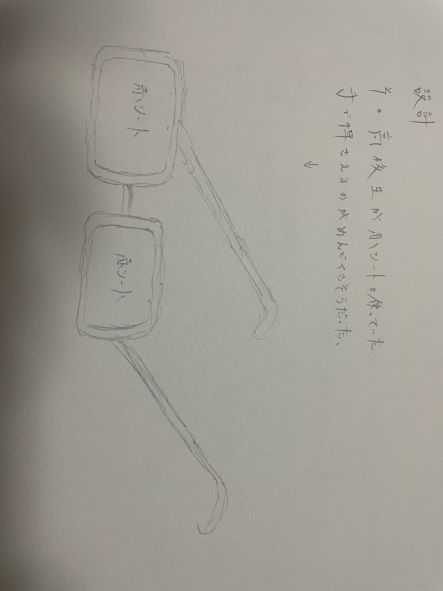 設計
その高校生が赤シートを使っていた。
手で押さえるのがめんどくさそうだった。
↓
赤シート
赤シート